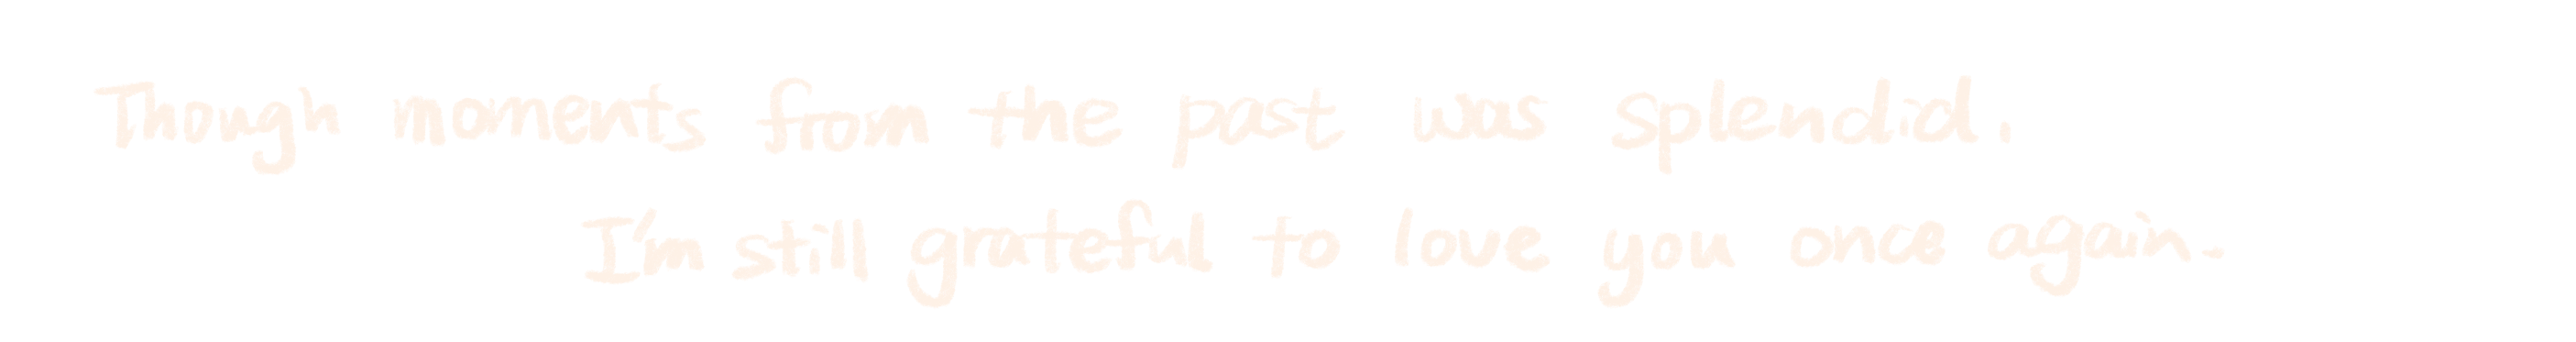 Though moments from the past was splendid.
I'm still grateful to love you once again.